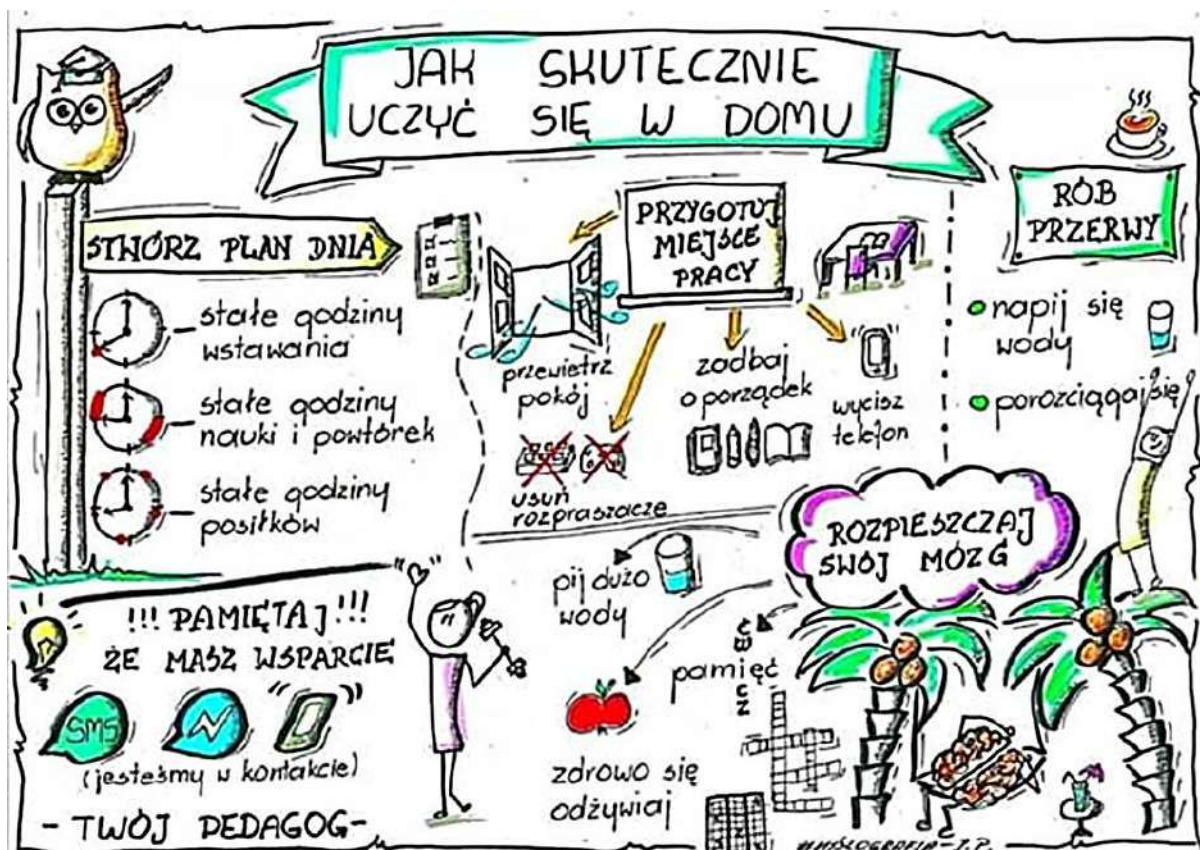 JAK SKUTECZNIE
UCZYĆ SIĘ W DOMU
STWÓRZ PLAN DNIA
stałe godziny
wstawania
stałe godziny
nauki i powtórek
stałe godziny
posiłków
PRZYGOTUJ
MIEJSCE
PRACY
przewietrz
pokój
usuń
rozpraszacze
zadbaj
o porządek
wycisz
telefon
RÓB
PRZERWY
napij się
wody
porozciągaj się
ROZPIESZCZAJ
SWÓJ MÓZG
pij dużo
wody
ćwicz
pamięć
zdrowo się
odżywiaj
!!! PAMIĘTAJ !!!
ŻE MASZ WSPARCIE
SMS
(jesteśmy w kontakcie)
- TWÓJ PEDAGOG -